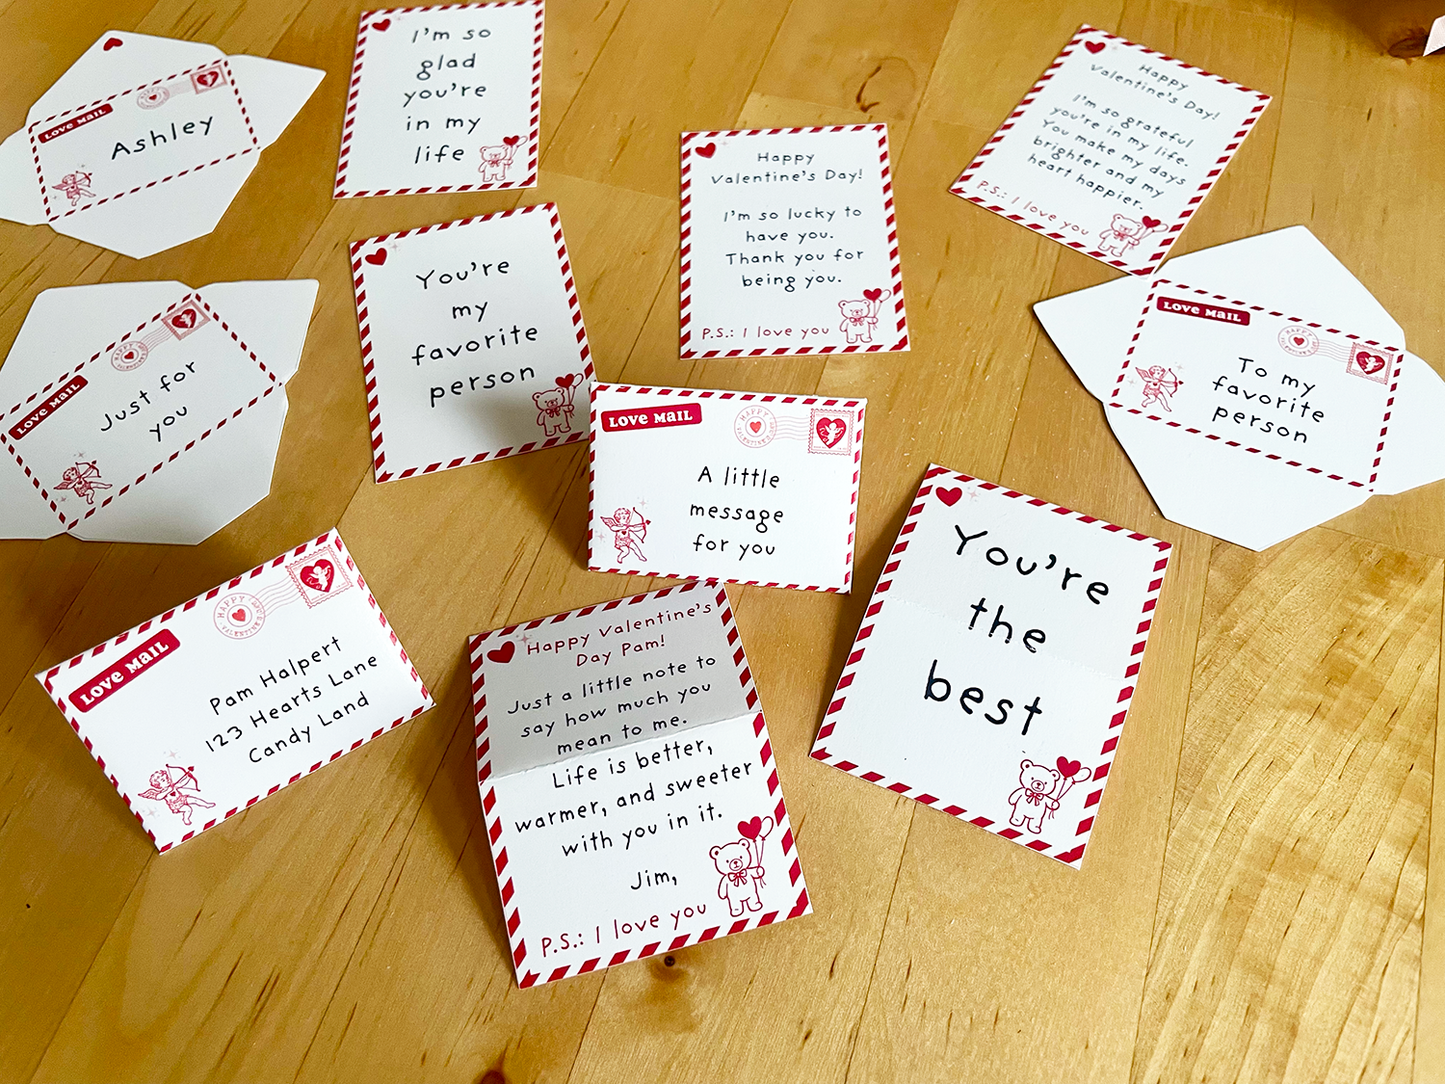 LOVE MAIL
Ashley
I'm so
glad
you're
in my
life
Happy
Valentine's Day!
I'm so grateful
you're in my life.
You make my days
brighter and my
heart happier.
P.S.: I love you
Happy
Valentine's Day!
I'm so lucky to
have you.
Thank you for
being you.
P.S.: I love you
You're
my
favorite
person
LOVE MAIL
Just for
you
LOVE MAIL
To my
favorite
person
LOVE MAIL
HAPPY
A little
message
for you
LOVE MAIL
HAPPY
Pam Halpert
123 Hearts Lane
Candy Land
Happy Valentine's
Day Pam!
Just a little note to
say how much you
mean to me.
Life is better,
warmer, and sweeter
with you in it.
Jim,
P.S.: I love you
You're
the
best